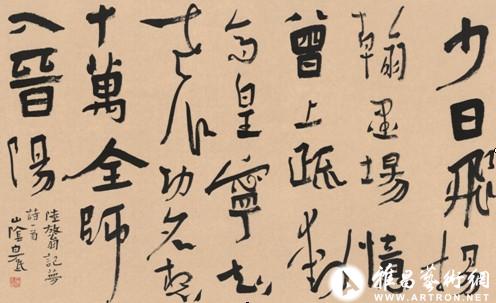 少日飛揚
翰墨場憶
曾上疏動
高皇寧知
老作功名
十萬全師
入晉陽
陸放翁記夢
詩一首
山陰
雅昌藝術網
WWW.ARTRON.NET